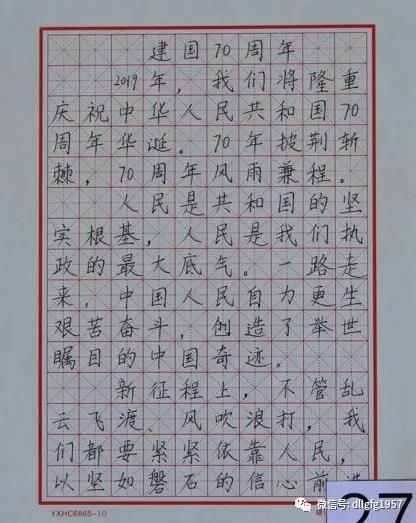 建国70周年
2019年，我们将隆重
庆祝中华人民共和国70
周年华诞。70年披荆斩
棘，70周年风雨兼程。
人民是共和国的坚
实根基，人民是我们执
政的最大底气。一路走
来，中国人民自力更生
艰苦奋斗，创造了举世
瞩目的中国奇迹。
新征程上，不管乱
云飞渡、风吹浪打，我
们都要紧紧依靠人民，
以坚如磐石的信心前进
YXHC6865-10
27
微信号: dllgfg1957